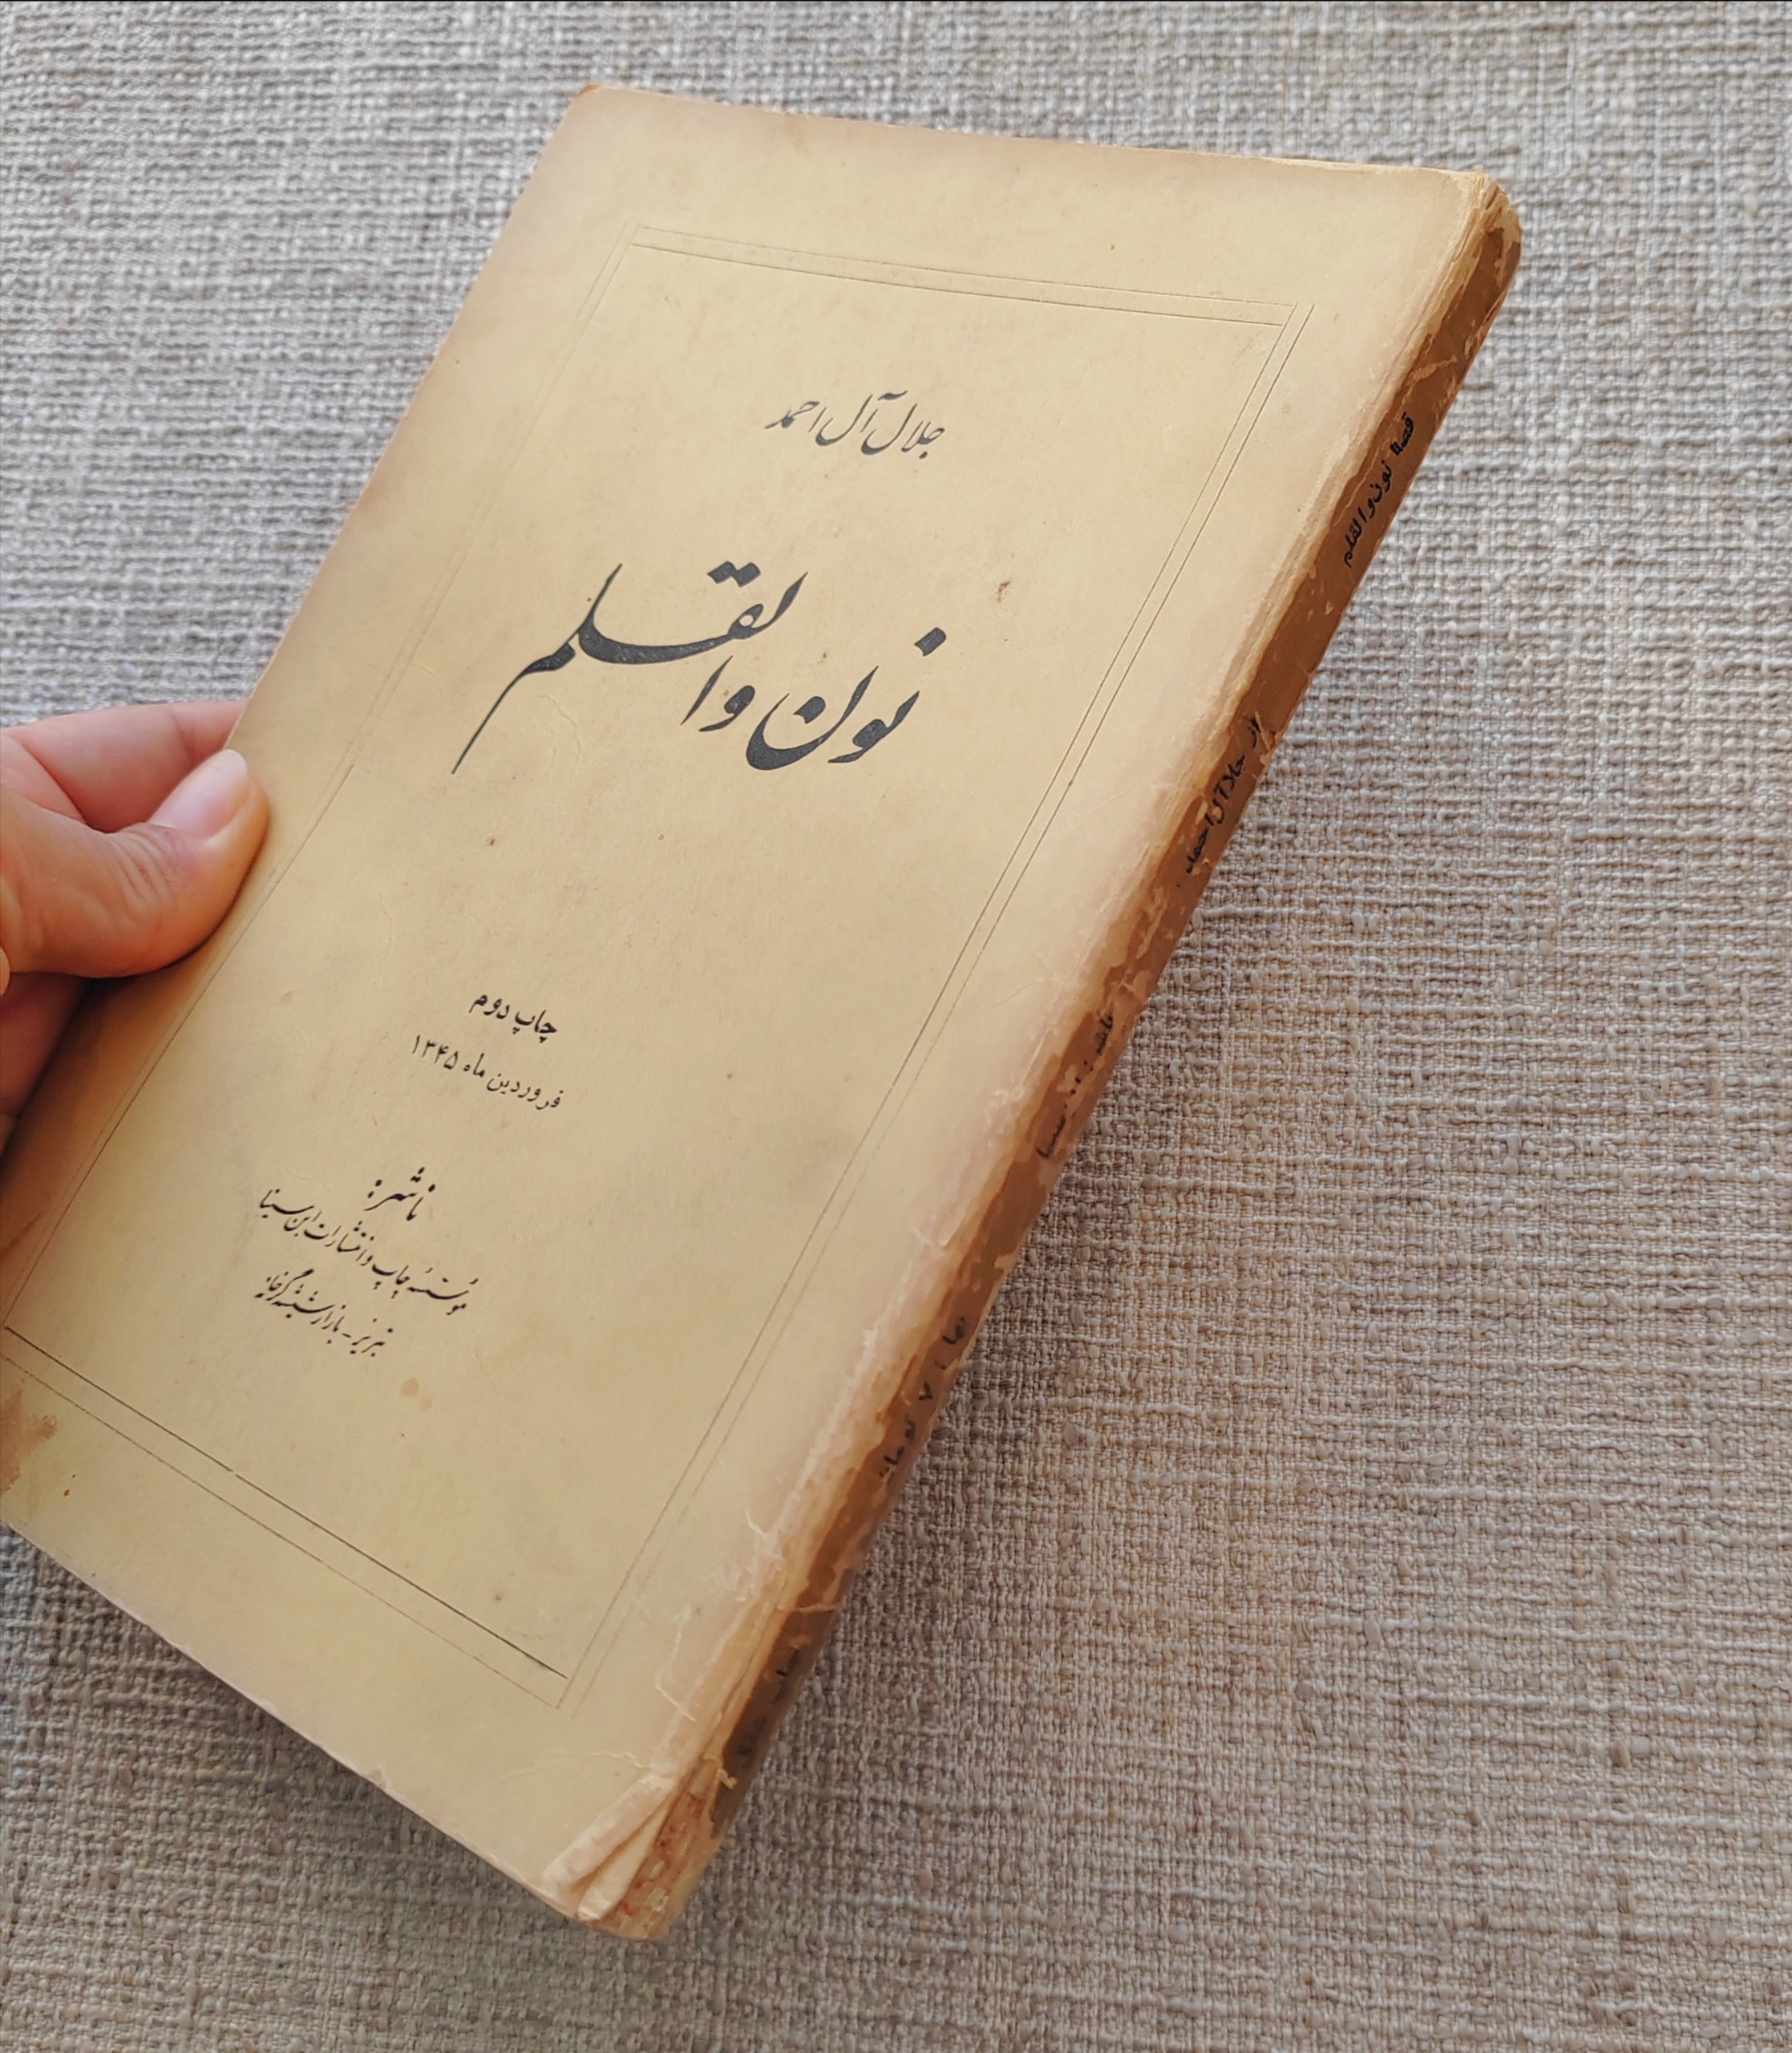 جلال آل احمد
نون والقلم
چاپ دوم
فروردین ماه ۱۳۴۵
ناشر:
مؤسسهٔ چاپ و انتشارات ابن سینا
تبریز - بازار شیشه‌گرخانه
قصهٔ نون والقلم
از جلال آل احمد